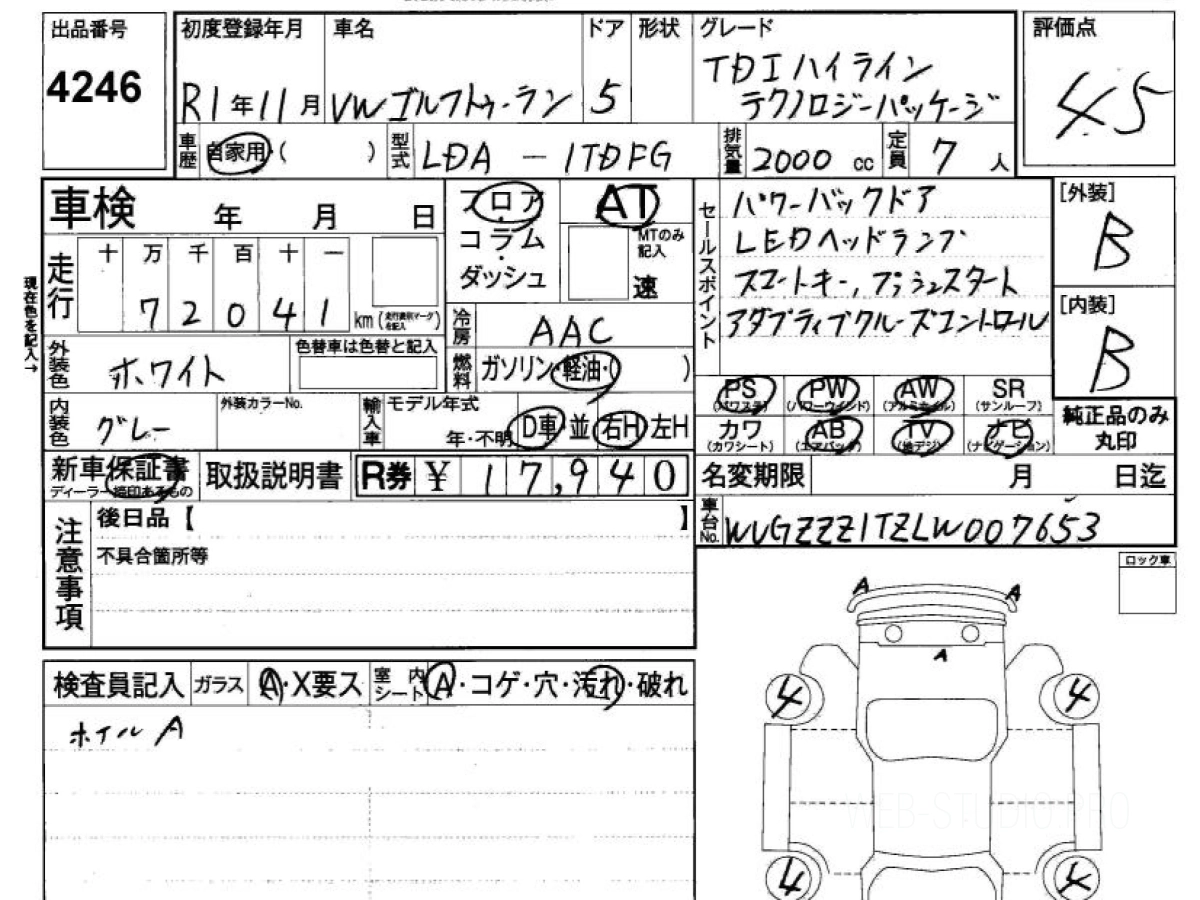 出品番号 初度登録年月 車名 ドア 形状 グレード 評価点
4246 R1年11月 VWゴルフトゥーラン 5 TDIハイライン 4.5
テクノロジーパッケージ
車歴 自家用・( ) 型式 LDA - 1TDFG 排気量 2000 cc 定員 7 人
車検 年 月 日
フロア・コラム・ダッシュ
AT
MTのみ記入
速
セールスポイント
パワーバックドア
LEDヘッドランプ
スマートキー,プッシュスタート
アダプティブクルーズコントロール
[外装]
B
[内装]
B
現在色を記入→
走行 十 万 千 百 十 一
72041 km(走行表示マーク を記入)
冷房 AAC
外装色 ホワイト 色替車は色替と記入
燃料 ガソリン・軽油・( )
内装色 グレー 外装カラーNo. 輸入車 モデル年式 年・不明 D車・並 右H・左H
PS (パワステ) PW (パワーウインド) AW (アルミホイル) SR (サンルーフ)
カワ (カワシート) AB (エアバッグ) TV (地デジ) ナビ (ナビゲーション)
純正品のみ丸印
新車保証書 ディーラー捺印あるもの 取扱説明書 R券 ¥ 17,940
名変期限 月 日迄
車台No. WVGZZZ1TZLW007653
注意事項
後日品【 】
不具合箇所等
ロック車
検査員記入 ガラス A・X要ス 室内シート A・コゲ・穴・汚れ・破れ
ホイルA
A A
A
4 4
4 4
WEB-STUDIO.PRO